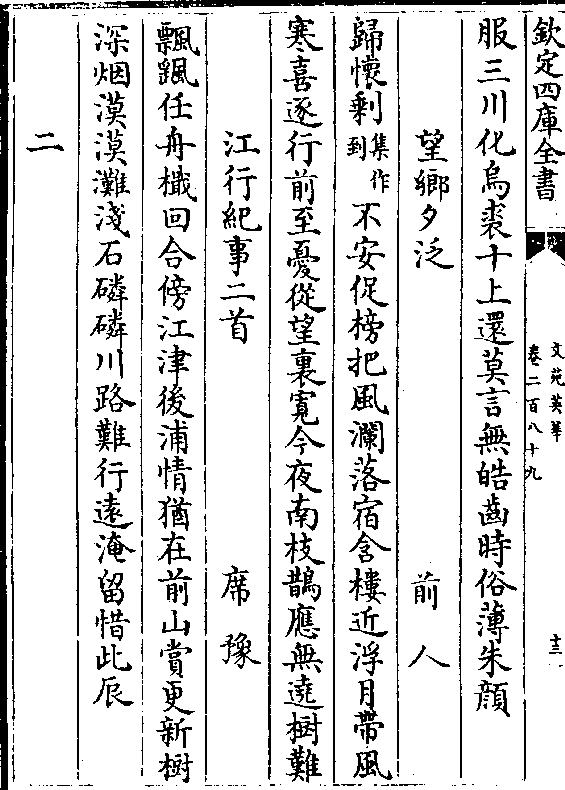 欽定四庫全書
文苑英華
卷二百八十九
十三
服三川化烏裘十上還莫言無皓齒時俗薄朱顔
望鄉夕泛
前人
歸懷剩集作到不安促榜把風瀾落宿含樓近浮月帶風
寒喜逐行前至憂從望裏寛今夜南枝鵲應無遶樹難
江行紀事二首
席豫
飄飄任舟檝回合傍江津後浦情猶在前山賞更新樹
深烟漠漠灘淺石磷磷川路難行遠淹留惜此辰
二